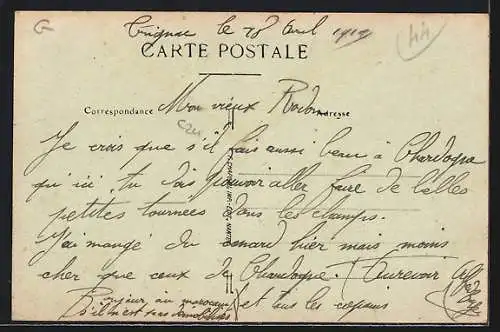 G
Trignac le 28 Avril 1919
44
CARTE POSTALE
Correspondance
Adresse
Mon vieux Rodon
Je crois que s'il fais aussi beau à Chardogne
qu'ici, tu dois pouvoir aller faire de belles
petites tournées dans les champs.
J'ai mangé du canard hier mais moins
cher que ceux de Chardogne. Aurevoir
Bonjour au
s'il n'est pas démobilisé et tous les copains